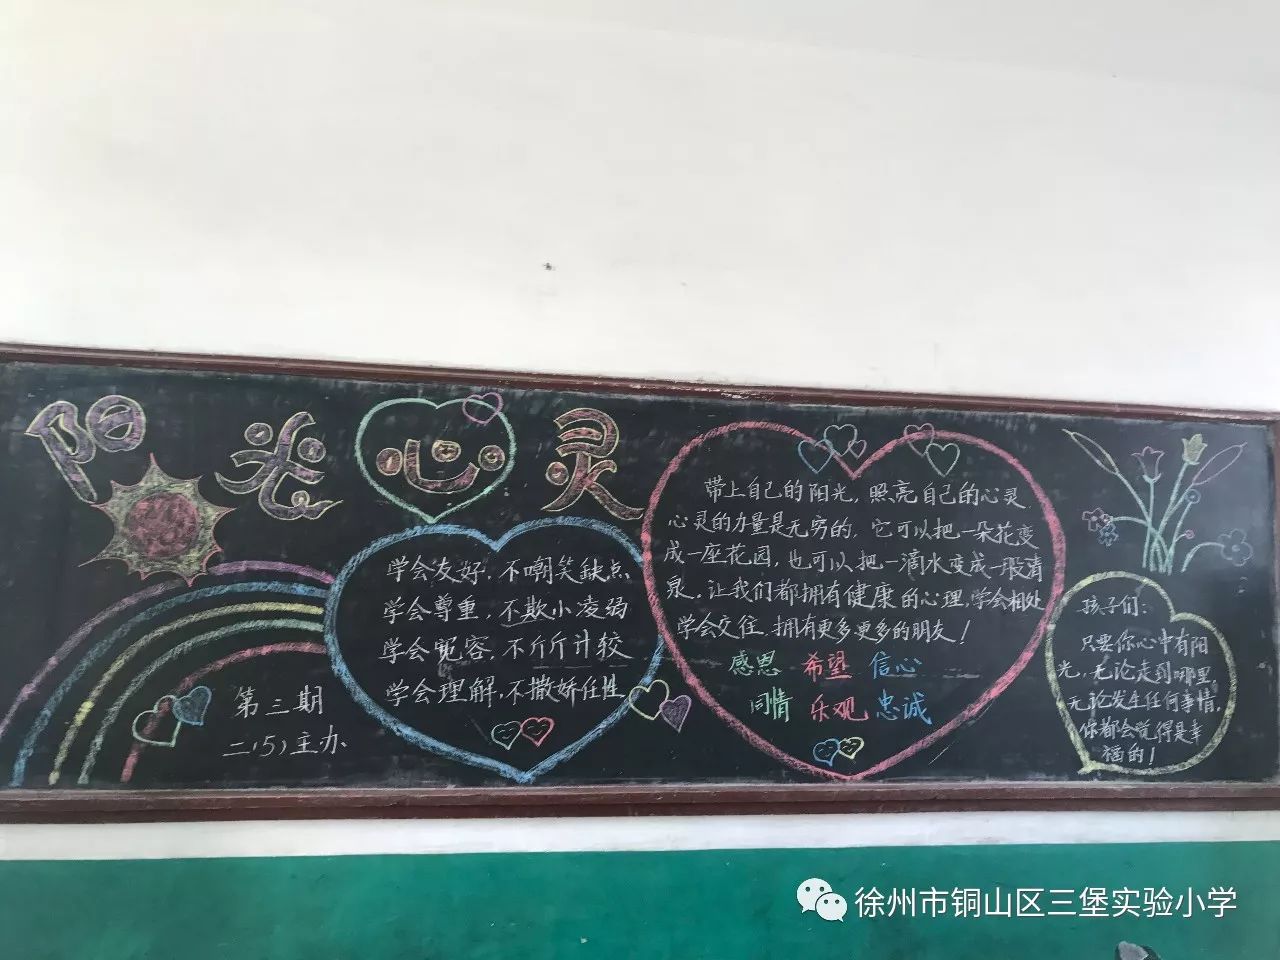 阳光心灵
第三期
二(5)主办
学会友好,不嘲笑缺点
学会尊重,不欺小凌弱
学会宽容,不斤斤计较
学会理解,不撒娇任性
带上自己的阳光,照亮自己的心灵
心灵的力量是无穷的,它可以把一朵花变
成一座花园,也可以把一滴水变成一股清
泉,让我们都拥有健康的心理,学会相处
学会交往,拥有更多更多的朋友!
感恩 希望 信心
同情 乐观 忠诚
孩子们:
只要你心中有阳
光,无论走到哪里,
无论发生任何事情,
你都会觉得是幸
福的!
徐州市铜山区三堡实验小学